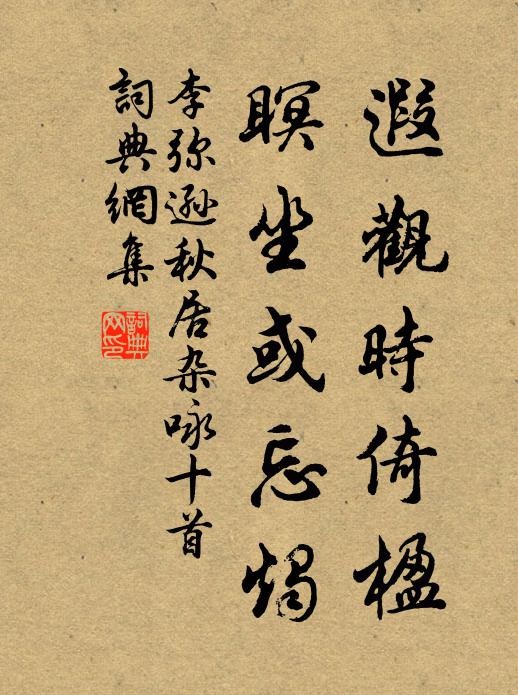 遐觀時倚楹
瞑坐或忘燭
李弥遜秋居杂咏十首
詞典網集
詞典网印